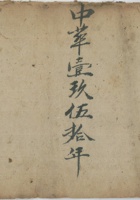 中華壹玖伍拾年